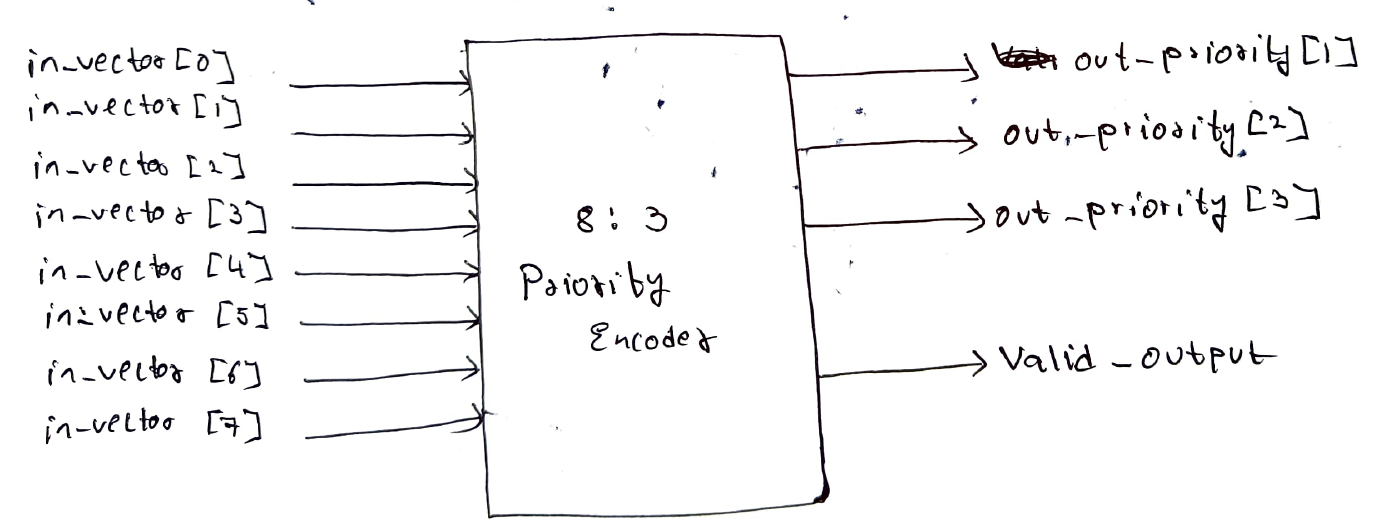 in_vector [0]
in_vector [1]
in_vector [2]
in_vector [3]
in_vector [4]
in_vector [5]
in_vector [6]
in_vector [7]
8:3
Priority
Encoder
out_priority [1]
out_priority [2]
out_priority [3]
Valid_output